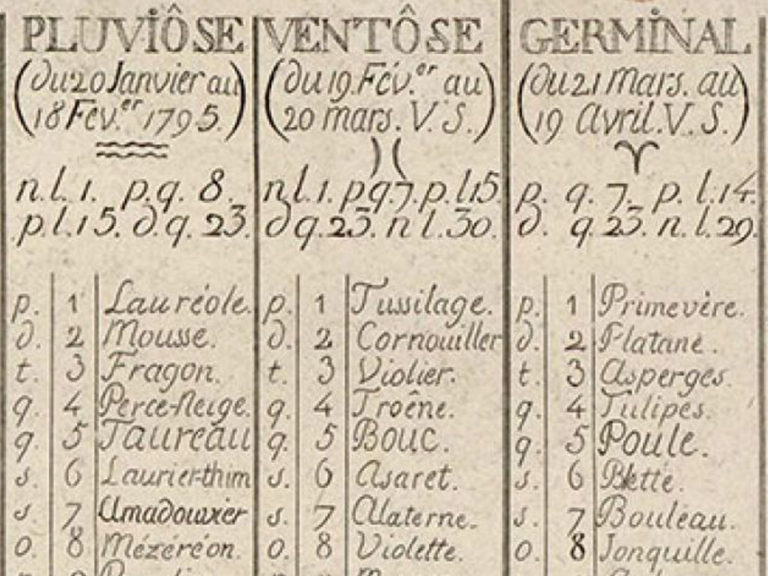 PLUVIÔSE
(du 20 Janvier au
18 Fév.er 1795.)
n.l. 1. p.q. 8.
p.l. 15. d.q. 23.
p. 1 Lauréole.
d. 2 Mousse.
t. 3 Fragon.
q. 4 Perce-Neige.
q. 5 TAUREAU
s. 6 Laurier-thim
s. 7 Amadouvier
o. 8 Mézéréon.
VENTÔSE
(du 19. Fév.er au
20 mars. V. S.)
n.l. 1. p.q. 7. p.l. 15.
d.q. 23. n.l. 30.
p. 1 Tussilage.
d. 2 Cornouiller
t. 3 Violier.
q. 4 Troêne.
q. 5 BOUC.
s. 6 Asaret.
s. 7 Alaterne.
o. 8 Violette.
GERMINAL
(du 21 mars. au
19 Avril. V. S.)
p. q. 7. p. l. 14.
d. q. 23. n. l. 29.
p. 1 Primevère.
d. 2 Platane.
t. 3 Asperges.
q. 4 Tulipes.
q. 5 Poule.
s. 6 Blette.
s. 7 Bouleau.
o. 8 Jonquille.